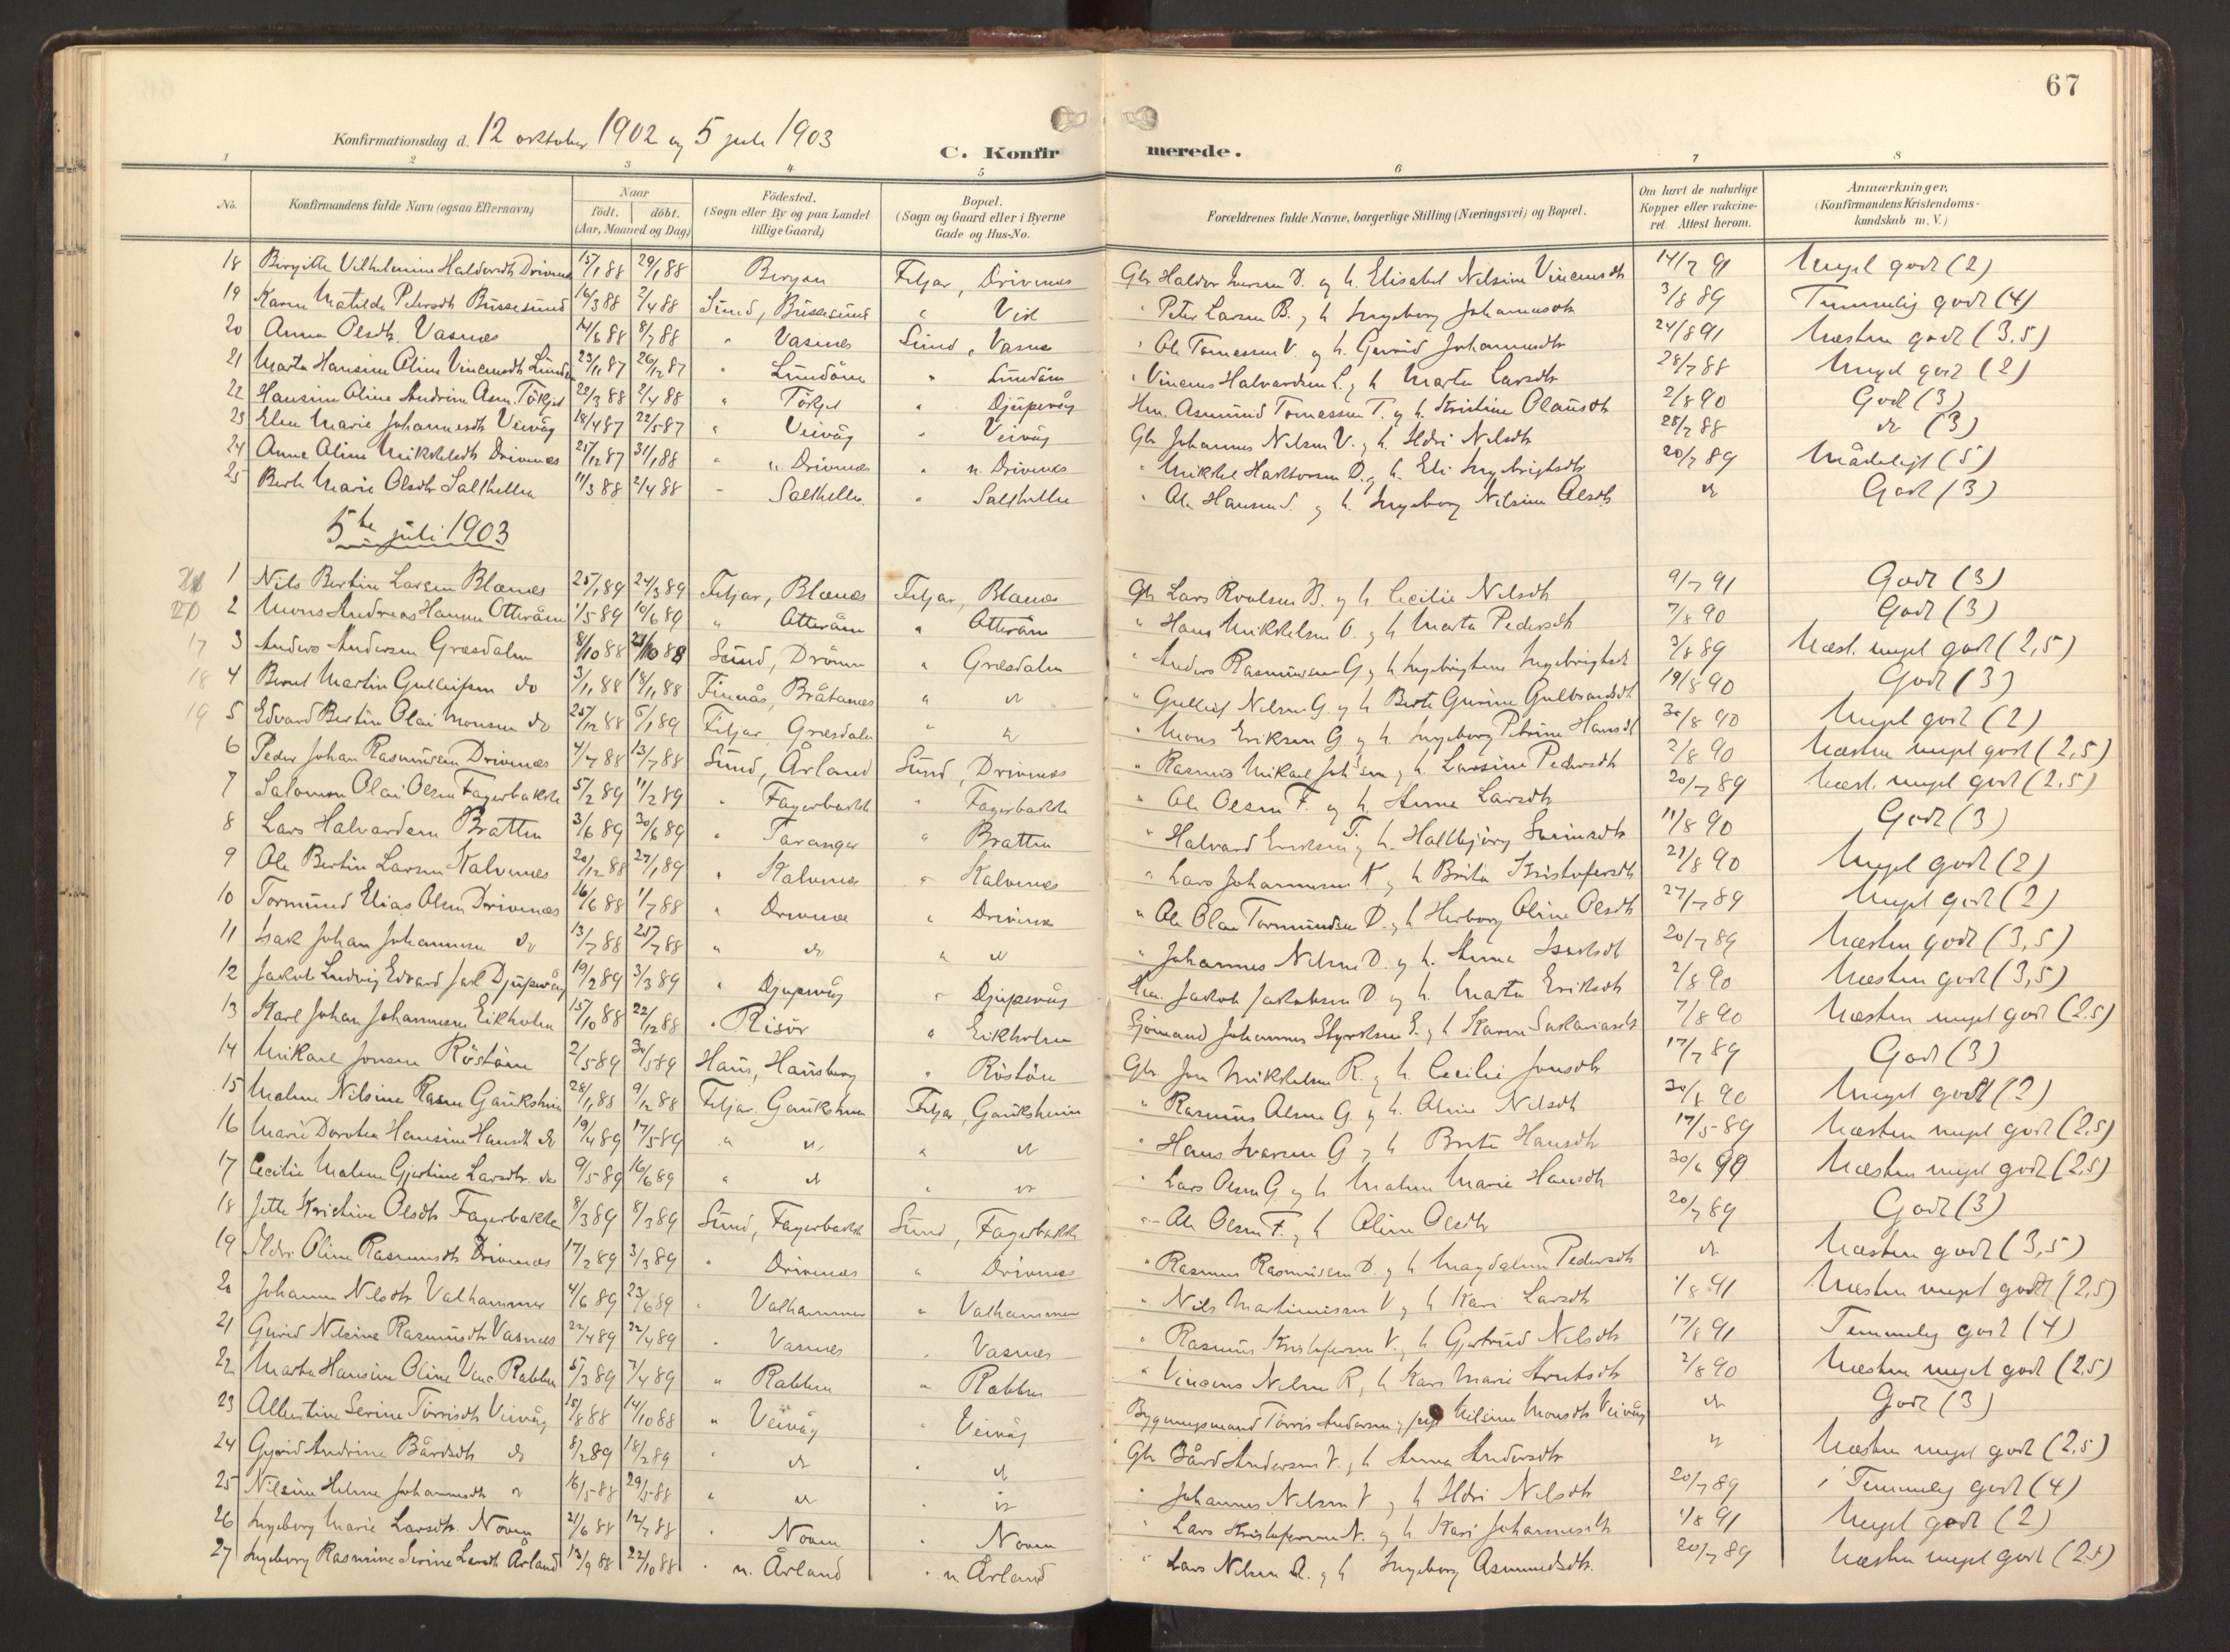 67
Konfirmationsdag d. 12 oktober 1902 og 5 juli 1903
C. Konfirmerede.
1 2 3 4 5 6 7 8
No. Konfirmandens fulde Navn (ogsaa Efternavn) Naar födt. döbt. (Aar, Maaned og Dag) Födested. (Sogn eller By og paa Landet tillige Gaard) Bopæl. (Sogn og Gaard eller i Byerne Gade og Hus-No. Forældrenes fulde Navne, borgerlige Stilling (Næringsvei) og Bopæl. Om havt de naturlige Kopper eller vakcineret. Attest herom. Anmærkninger. (Konfirmandens Kristendomskundskab m. V.)
18 Birgitte Vilhelmine Haldorsdtr Drivenes 15/1 88 29/1 88 Bergen Fitjar, Drivenes Gbr Haldor Iversen D. og h. Elisabet Nilsine Vincensdtr 14/7 91 Meget godt (2)
19 Karen Matilde Petersdtr Bussesund 16/3 88 2/4 88 Sund, Bussesund " Vik " Peter Larsen B. og h Ingeborg Johannesdtr 3/8 89 Temmelig godt (4)
20 Anna Olsdtr. Vasnes 14/6 88 8/7 88 " Vasnes Sund, Vasnes " Ole Tomassen V. og h. Gurid Johannesdtr 24/8 91 Næsten godt (3.5)
21 Marta Hansine Oline Vincensdtr 23/11 87 26/12 87 " Lundöen " Lundöen " Vincens Halvardsen L. og h Marta Larsdtr 28/7 88 Meget godt (2)
22 Hansine Oline Andrine Asm. Tökjet 22/3 88 2/4 88 " Tökjet " Djupevåg Hm. Asmund Tomassen T. og h. Kristine Olausdtr 2/8 90 Godt (3)
23 Elen Marie Johannesdtr Veivåg 18/4 87 22/5 87 " Veivåg " Veivåg Gbr Johannes Nilsen V. og h. Ildri Nilsdtr 28/7 88 do (3)
24 Anna Oline Mikkelsdtr Drivenes 25/12 87 31/1 88 " n. Drivenes " n. Drivenes " Mikkel Haktorsen D. og h. Eli Ingebrigtsdtr 20/7 89 Mådeligt (5)
25 Berte Marie Olsdtr Salthella 11/3 88 2/4 88 " Salthella " Salthella " Ole Hansen S. og h. Ingeborg Nilsine Olsdtr do Godt (3)
5te juli 1903
21 1 Nils Bertin Larsen Blænes 25/1 89 24/3 89 Fitjar, Blænes Fitjar, Blænes Gbr Lars Roalsen B. og h Cecilie Nilsdtr 9/7 91 Godt (3)
20 2 Mons Andreas Hansen Otteröen 1/5 89 10/6 89 " Otteröen " Otteröen " Hans Mikkelsen O. og h Marta Pedersdtr 7/8 90 Godt (3)
17 3 Anders Andersen Græsdalen 8/10 88 Sund, Drönen " Græsdalen " Anders Rasmussen G og h Ingebrigtsdtr 3/8 89 Næst. meget godt (2,5)
18 4 Bernt Martin Gulleifsen do 3/11 88 18/11 88 Finnås, Bråtanes " do " Gulleif Nilsen G. og h Berte Gurine Gulbrandsdtr 19/8 90 Godt (3)
19 5 Edvard Bertin Olai Monsen do 25/12 88 5/1 89 Fitjar Græsdalen " do " Mons Eriksen G og h. Ingeborg Petrine Hansdtr 30/8 90 Meget godt (2)
6 Peder Johan Rasmussen Drivenes 4/7 88 13/7 88 Sund, Årland Sund, Drivenes " Rasmus Mikael og h. Larsine Pedersdtr 2/8 90 Næsten meget godt (2,5)
7 Salomon Olai Olsen Fagerbakke 5/2 89 11/2 89 " Fagerbakke " Fagerbakke " Ole Olsen F. og h. Anna Larsdtr 20/7 89 Næst. meget godt (2,5)
8 Lars Halvardsen Bratten 3/6 89 30/6 89 " Taranger " Bratten " Halvard Eriksen T. og h. Hallbjörg Sveinsdtr 11/8 90 Godt (3)
9 Ole Bertin Larsen Kalvenes 20/12 88 27/1 89 " Kalvenes " Kalvenes " Lars Johannesen K og h Brita Kristofersdtr 21/8 90 Meget godt (2)
10 Tormund Elias Olsen Drivenes 16/6 88 11/7 88 " Drivenes " Drivenes " Ole Olai Tormundsen D. og h Herborg Oline Olsdtr 27/7 89 Meget godt (2)
11 Isak Johan Johannesen do 13/7 88 25/7 88 " do " do " Johannes Nilsen D. og h. Anna Isaksdtr 20/7 89 Næsten godt (3,5)
12 Jakob Ludvig Edvard Jak Djupevåg 19/2 89 3/3 89 " Djupevåg " Djupevåg Hm. Jakob Jakobsen D og h. Marta Eriksdtr 2/8 90 Næsten godt (3,5)
13 Karl Johan Johannesen Eikholm 15/10 88 22/12 88 " Risör " Eikholm Sjömand Johannes Styrksen E. og h Karen Sakariasdtr 7/8 90 Næsten meget godt (2.5)
14 Mikael Jonsen Röstöen 2/5 89 30/5 89 Haus, Hausberg " Röstöen Gbr Jon Mikkelsen R. og h. Cecilie Jonsdtr 17/7 89 Godt (3)
15 Malene Nilsine Rasm Gauksheim 28/11 88 9/12 88 Fitjar Gauksheim Fitjar, Gauksheim " Rasmus Olsen G. og h. Oline Nilsdtr 30/8 90 Meget godt (2)
16 Marie Dorotea Hansine Hansdtr do 19/4 89 17/5 89 " do " do " Hans Ivarsen G og h Brita Hansdtr 17/5 89 Næsten meget godt (2,5)
17 Cecilie Malene Gjertine Larsdtr. do 9/5 89 16/6 89 " do " do " Lars Olsen G og h Malene Marie Hansdtr 30/6 90 Næsten meget godt (2,5)
18 Jette Kristine Olsdtr Fagerbakke 8/3 89 8/3 89 Sund, Fagerbakke Sund, Fagerbakke " Ole Olsen F. og h Oline Olsdtr 20/7 89 Godt (3)
19 Ildri Oline Rasmusdtr Drivenes 17/2 89 3/3 89 " Drivenes " Drivenes " Rasmus Rasmussen D. og h Magdalene Pedersdtr do Næsten godt (3,5)
20 Johanne Nilsdtr Valhammer 4/6 89 23/6 89 " Valhammer " Valhammer " Nils Martinussen V og h Kari Larsdtr 1/8 91 Næsten meget godt (2,5)
21 Gurid Nilsine Rasmusdtr Vasnes 22/4 89 22/4 89 " Vasnes " Vasnes " Rasmus Kristofersen V. og h Gjertrud Nilsdtr 17/8 91 Temmelig godt (4)
22 Marta Hansine Oline Vinc. Rabben 5/3 89 7/4 89 " Rabben " Rabben " Vincens Nilsen R, h Kari Marie Arntsdtr 2/8 90 Næsten meget godt (2,5)
23 Albertine Serine Törrisdtr Veivåg 15/8 88 14/10 88 " Veivåg " Veivåg Bygningsmand Törris Andersen og pige Nilsine Monsdtr Veivåg do Godt (3)
24 Gjorid Andrine Bårdsdtr do 8/2 89 18/2 89 " do " do Gbr Bård Andersen V. og h Anna Andersdtr do Næsten meget godt (2,5)
25 Nilsine Helene Johannesdtr do 16/5 88 29/5 88 " do " do " Johannes Nilsen V og h Ildri Nilsdtr 20/7 89 Temmelig godt (4)
26 Ingeborg Marie Larsdtr. Noven 21/6 88 12/7 88 " Noven " Noven " Lars Kristofersen N. og h. Kari Johannesdtr 1/8 91 Meget godt (2)
27 Ingeborg Rasmine Serine Larsdtr Årland 13/9 88 22/10 88 " n. Årland " n. Årland " Lars Nilsen A. og h Ingeborg Asmundsdtr. 20/7 89 Næsten meget godt (2,5)